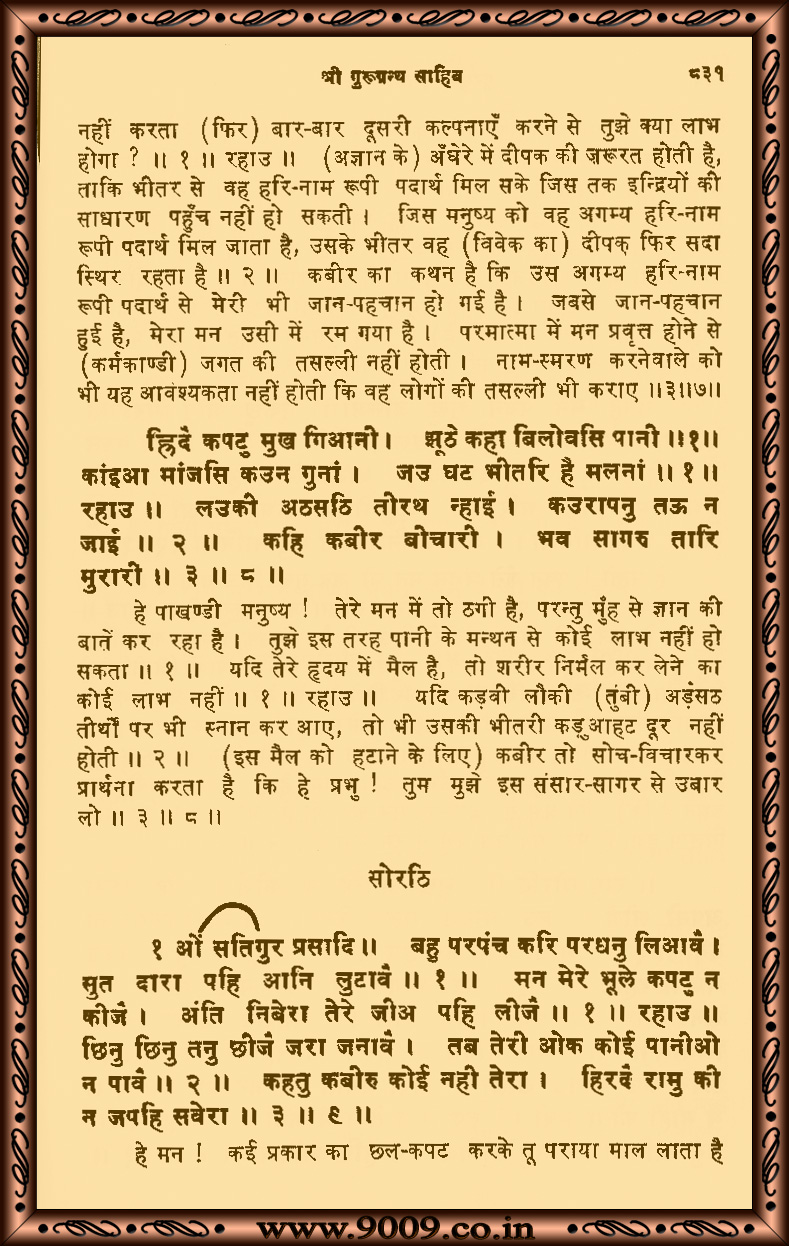 श्री गुरूग्रन्थ साहिब ८३१
नहीं करता (फिर) बार-बार दूसरी कल्पनाएँ करने से तुझे क्या लाभ
होगा ? ॥ १ ॥ रहाउ ॥ (अज्ञान के) अँधेरे में दीपक की ज़रूरत होती है,
ताकि भीतर से वह हरि-नाम रूपी पदार्थ मिल सके जिस तक इन्द्रियों की
साधारण पहुँच नहीं हो सकती । जिस मनुष्य को वह अगम्य हरि-नाम
रूपी पदार्थ मिल जाता है, उसके भीतर वह (विवेक का) दीपक फिर सदा
स्थिर रहता है ॥ २ ॥ कबीर का कथन है कि उस अगम्य हरि-नाम
रूपी पदार्थ से मेरी भी जान-पहचान हो गई है । जबसे जान-पहचान
हुई है, मेरा मन उसी में रम गया है । परमात्मा में मन प्रवृत्त होने से
(कर्मकाण्डी) जगत की तसल्ली नहीं होती । नाम-स्मरण करनेवाले को
भी यह आवश्यकता नहीं होती कि वह लोगों की तसल्ली भी कराए ॥३॥७॥
ह्रिदै कपटु मुख गिआनी । झूठे कहा बिलोवसि पानी ॥१॥
कांइआ मांजसि कउन गुनां । जउ घट भीतरि है मलनां ॥ १ ॥
रहाउ ॥ लउकी अठसठि तीरथ न्हाई । कउरापनु तऊ न
जाई ॥ २ ॥ कहि कबीर बीचारी । भव सागरु तारि
मुरारी ॥ ३ ॥ ८ ॥
हे पाखण्डी मनुष्य ! तेरे मन में तो ठगी है, परन्तु मुँह से ज्ञान की
बातें कर रहा है । तुझे इस तरह पानी के मन्थन से कोई लाभ नहीं हो
सकता ॥ १ ॥ यदि तेरे हृदय में मैल है, तो शरीर निर्मल कर लेने का
कोई लाभ नहीं ॥ १ ॥ रहाउ ॥ यदि कड़वी लौकी (तुंबी) अड़सठ
तीर्थों पर भी स्नान कर आए, तो भी उसकी भीतरी कड़ुआहट दूर नहीं
होती ॥ २ ॥ (इस मैल को हटाने के लिए) कबीर तो सोच-विचारकर
प्रार्थना करता है कि हे प्रभु ! तुम मुझे इस संसार-सागर से उबार
लो ॥ ३ ॥ ८ ॥
सोरठि
१ ओं सतिगुर प्रसादि ॥ बहु परपंच करि परधनु लिआवै ।
सुत दारा पहि आनि लुटावै ॥ १ ॥ मन मेरे भूले कपटु न
कीजै । अंति निबेरा तेरे जीअ पहि लीजै ॥ १ ॥ रहाउ ॥
छिनु छिनु तनु छीजै जरा जनावै । तब तेरी ओक कोई पानीओ
न पावै ॥ २ ॥ कहतु कबीरु कोई नही तेरा । हिरदै रामु की
न जपहि सवेरा ॥ ३ ॥ ९ ॥
हे मन ! कई प्रकार का छल-कपट करके तू पराया माल लाता है
www.9009.co.in